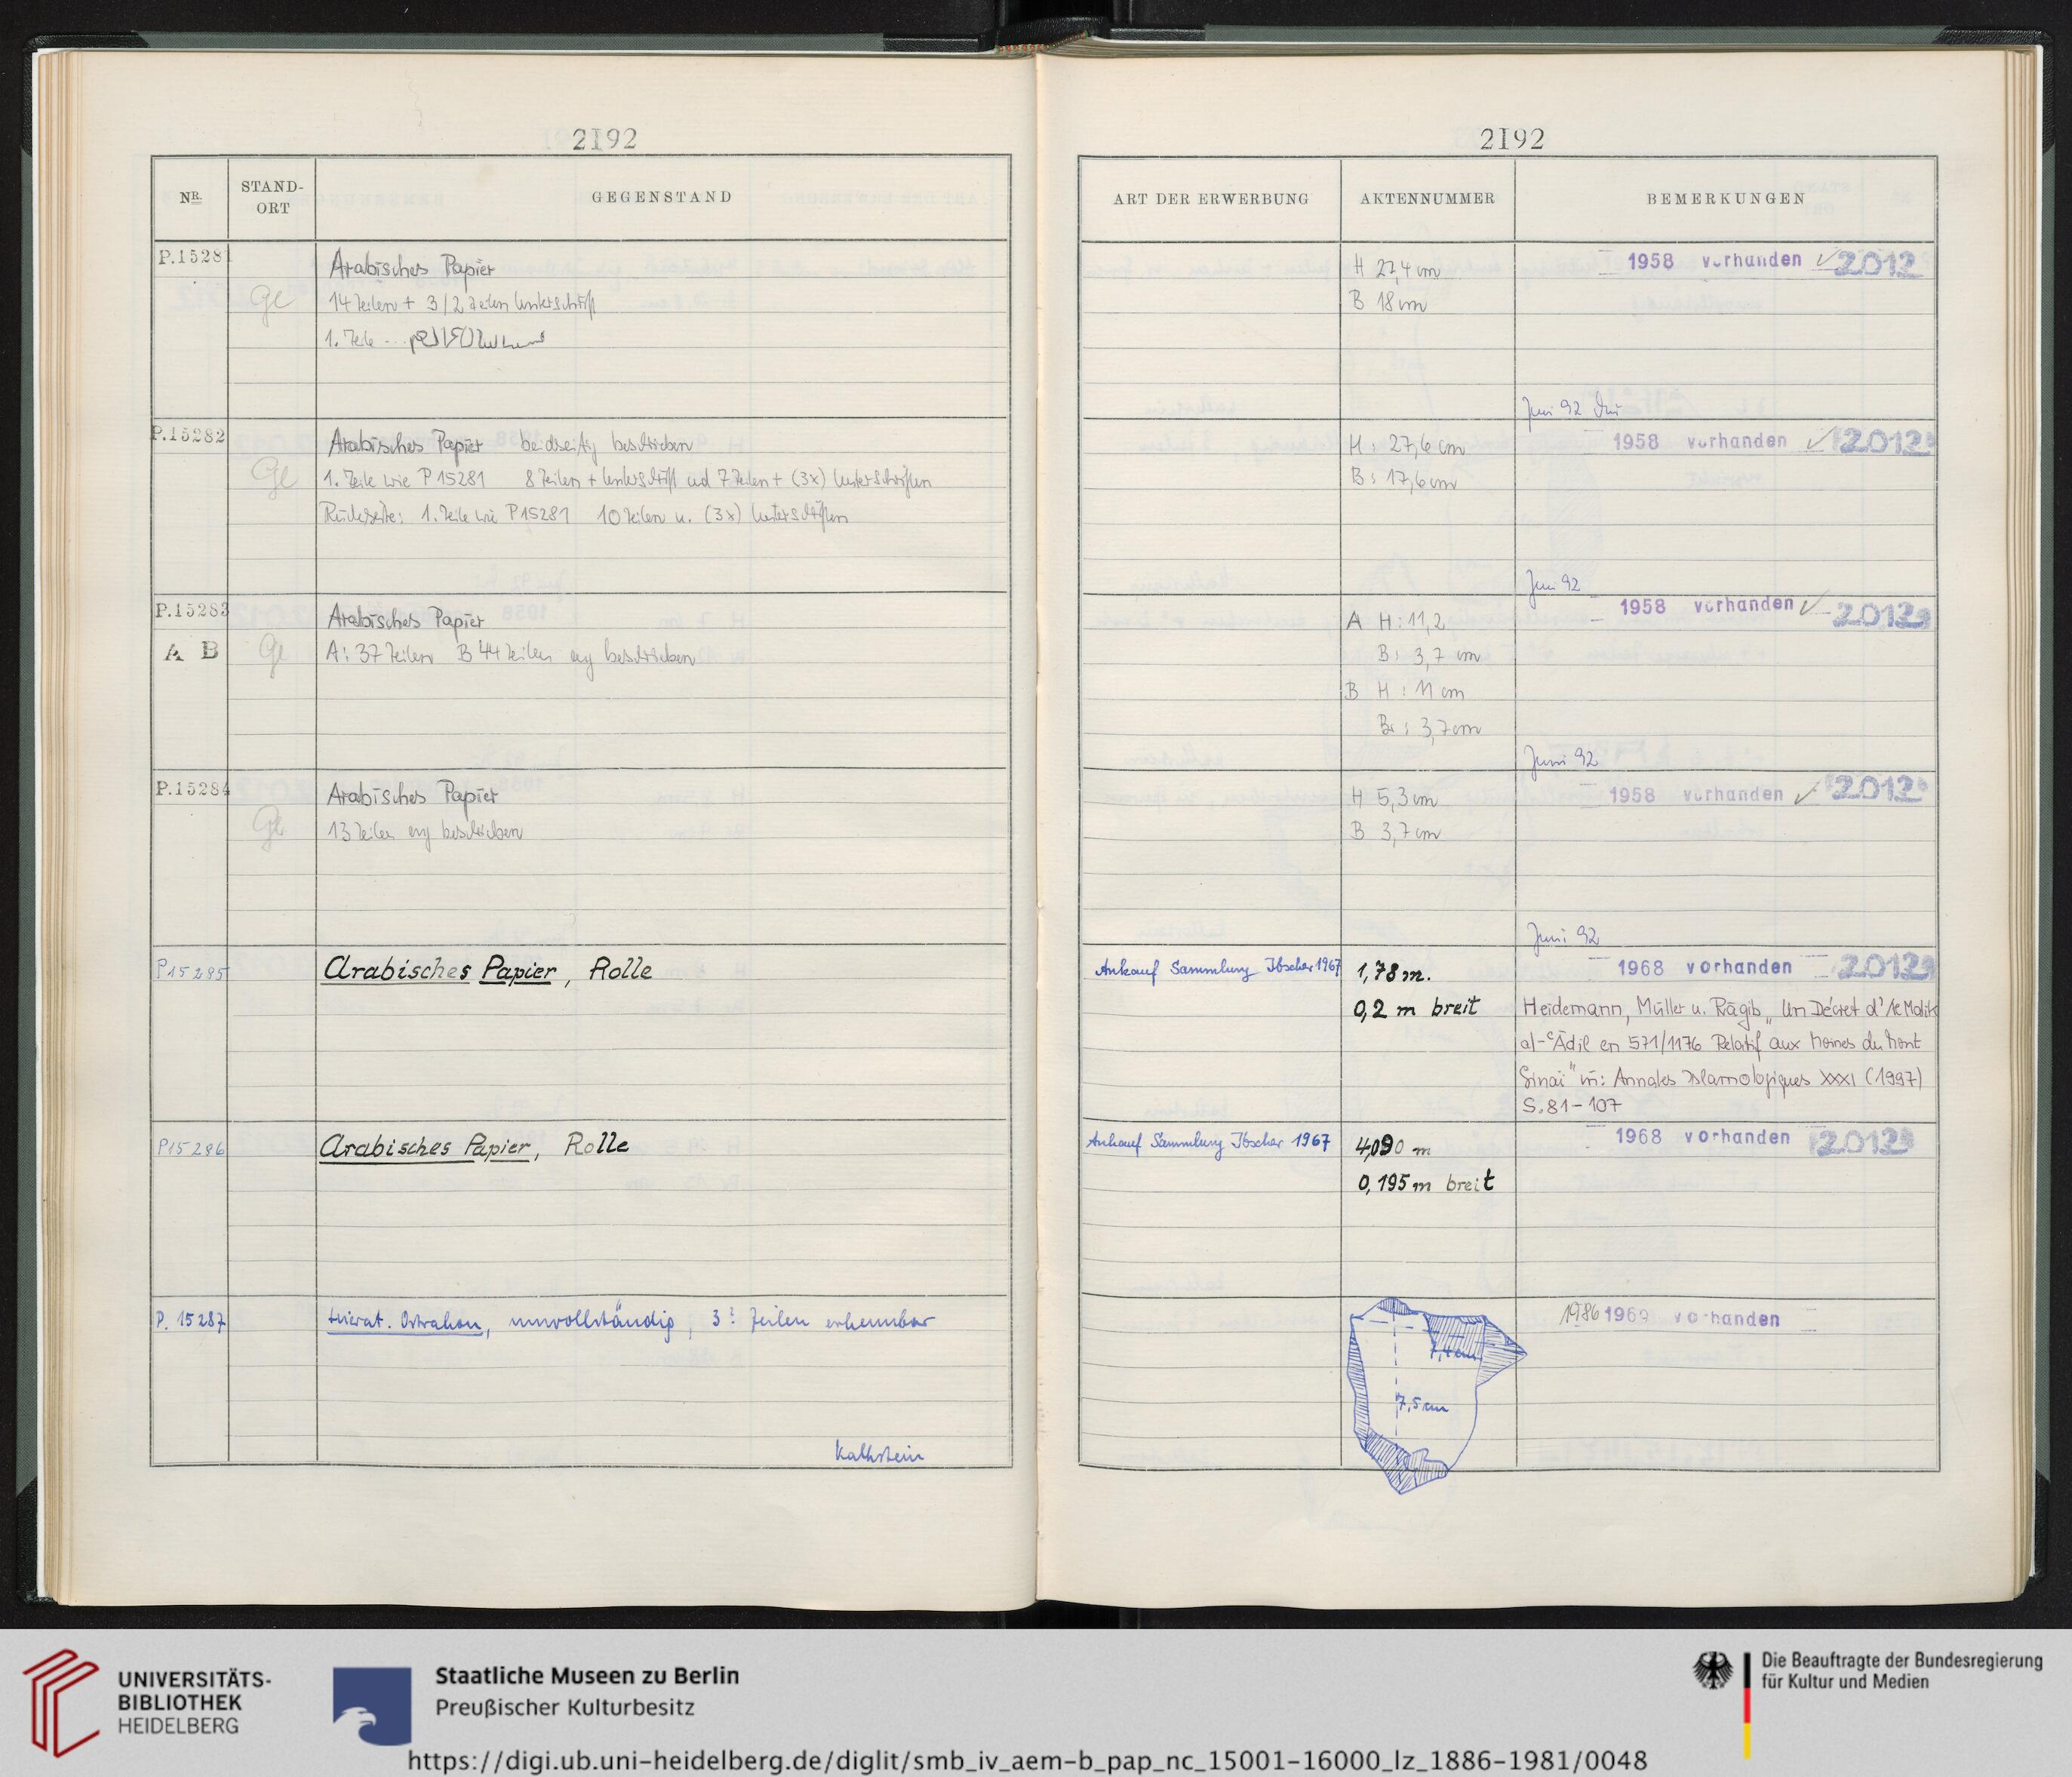 2192
NR. STAND-ORT GEGENSTAND
P.15281 Arabisches Papier
Ge 14 Zeilen + 3/2 Zeilen Unterschrift
1. Zeile
P.15282 Arabisches Papier beidseitig beschrieben
Ge 1. Zeile wie P 15281 8 Zeilen + Unterschrift und 7 Zeilen + (3x) Unterschriften
Rückseite: 1. Zeile wie P 15281 10 Zeilen u. (3x) Unterschriften
P.15283 Arabisches Papier
A B Ge A: 37 Zeilen B 44 Zeilen eng beschrieben
P.15284 Arabisches Papier
Ge 13 Zeilen eng beschrieben
P15285 Arabisches Papier, Rolle
P15286 Arabisches Papier, Rolle
P. 15287 Hierat. Ostrakon, unvollständig, 3? Zeilen erkennbar
Kalkstein
2192
ART DER ERWERBUNG AKTENNUMMER BEMERKUNGEN
H 27,4 cm 1958 vorhanden ✓ 2012
B 18 cm
Juni 92
H: 27,6 cm 1958 vorhanden ✓ 2012
B: 17,6 cm
Juni 92
A H: 11,2 1958 vorhanden ✓ 2012
B: 3,7 cm
B H: 11 cm
Br: 3,7 cm
Juni 92
H 5,3 cm 1958 vorhanden ✓ 2012
B 3,7 cm
Juni 92
Ankauf Sammlung Ibscher 1967 1,78 m. 1968 vorhanden 2012
0,2 m breit Heidemann, Müller u. Rāġib „Un Décret d'Al-Malik
al-ʿĀdil en 571/1176 Relatif aux Moines du Mont
Sinaï" in: Annales Islamologiques XXXI (1997)
S. 81-107
Ankauf Sammlung Ibscher 1967 4,090 m 1968 vorhanden 2012
0,195 m breit
1986 1969 vorhanden
7,5 cm
UNIVERSITÄTS-
BIBLIOTHEK
HEIDELBERG
Staatliche Museen zu Berlin
Preußischer Kulturbesitz
Die Beauftragte der Bundesregierung
für Kultur und Medien
https://digi.ub.uni-heidelberg.de/diglit/smb_iv_aem-b_pap_nc_15001-16000_lz_1886-1981/0048